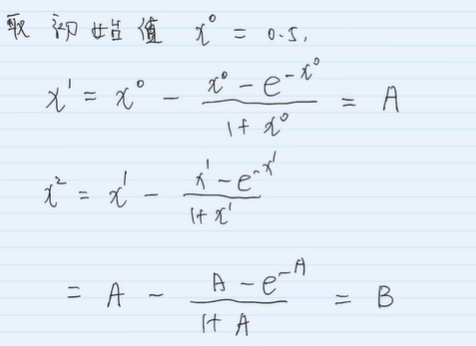 取初始值 x⁰ = 0.5,
x¹ = x⁰ - (x⁰ - e^(-x⁰))/(1 + x⁰) = A
x² = x¹ - (x¹ - e^(-x¹))/(1 + x¹)
= A - (A - e^(-A))/(1 + A) = B